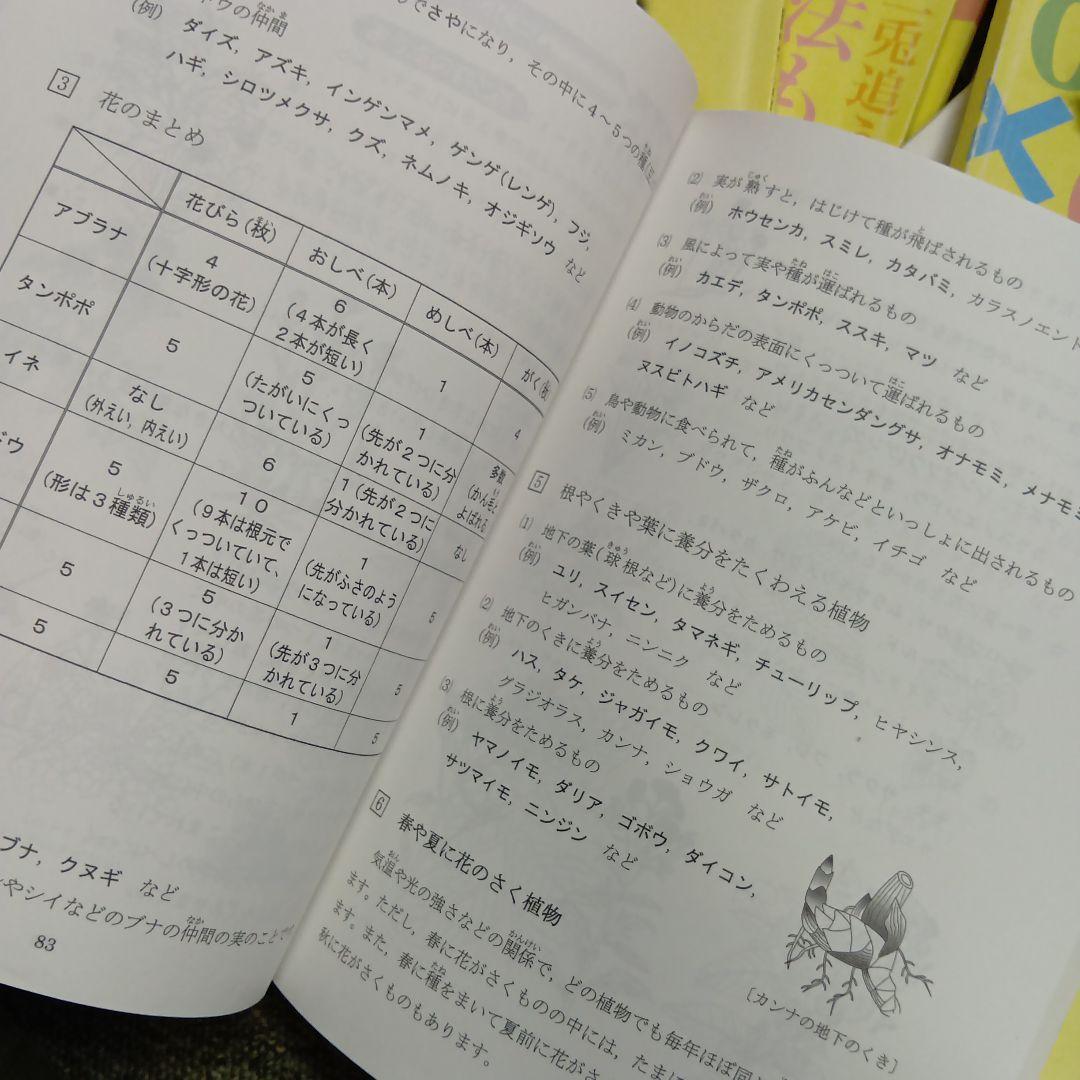 ドウの仲間
(例) ダイズ, アズキ, インゲンマメ, ゲンゲ(レンゲ), フジ,
ハギ, シロツメクサ, クズ, ネムノキ, オジギソウ など
でさやになり, その中に4〜5つの種
3 花のまとめ
花びら(枚) おしべ(本) めしべ(本) がく(枚)
アブラナ
4
(十字形の花)
6
(4本が長く
2本が短い)
1
4
タンポポ
5
5
(たがいにくっ
ついている)
1
(先が2つに分
かれている)
多数
(かん毛と
よばれる
イネ
なし
(外えい, 内えい)
6
1(先が2つに
分かれている)
なし
ドウ
5
(形は3種類)
10
(9本は根元で
くっついていて、
1本は短い)
1
(先がふさのよう
になっている)
5
5
5
(3つに分か
れている)
1
(先が3つに分
かれている)
5
5
5
1
5
ブナ, クヌギ など
やシイなどのブナの仲間の実のことで
83
(2) 実が熟すと, はじけて種が飛ばされるもの
(例) ホウセンカ, スミレ, カタバミ, カラスノエンド
(3) 風によって実や種が運ばれるもの
(例) カエデ, タンポポ, ススキ, マツ など
(4) 動物のからだの表面にくっついて運ばれるもの
(例) イノコズチ, アメリカセンダングサ, オナモミ, メナモミ
ヌスビトハギ など
(5) 鳥や動物に食べられて, 種がふんなどといっしょに出されるもの
(例) ミカン, ブドウ, ザクロ, アケビ, イチゴ など
5 根やくきや葉に養分をたくわえる植物
(1) 地下の葉(球根など)に養分をためるもの
(例) ユリ, スイセン, タマネギ, チューリップ, ヒヤシンス,
ヒガンバナ, ニンニク など
(2) 地下のくきに養分をためるもの
(例) ハス, タケ, ジャガイモ, クワイ, サトイモ,
グラジオラス, カンナ, ショウガ など
(3) 根に養分をためるもの
(例) ヤマノイモ, ダリア, ゴボウ, ダイコン,
サツマイモ, ニンジン など
6 春や夏に花のさく植物
気温や光の強さなどの関係で, どの植物でも毎年ほぼ同
ます。ただし, 春に花がさくものの中には, たまに
ます。また, 春に種をまいて夏前に花がさ
秋に花がさくものもあります。
〔カンナの地下のくき〕
兎追
法も